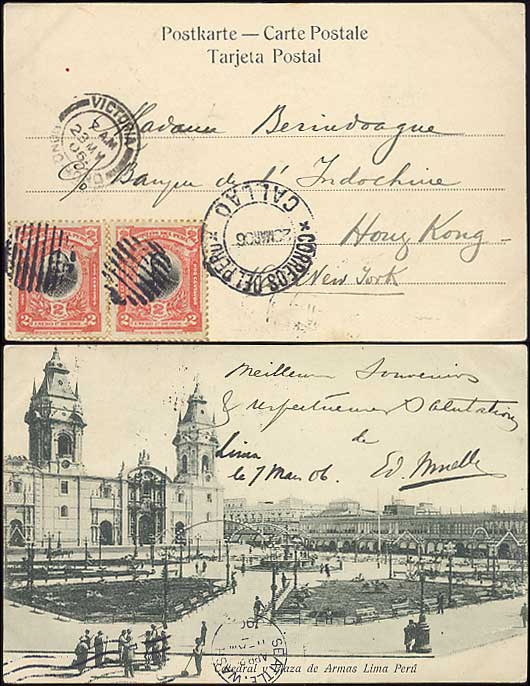 Postkarte — Carte Postale
Tarjeta Postal
VICTORIA
7 AM
23 MY
06
HONG KONG
Madame Berindoague
Banque de l'Indochine
Hong Kong
New York
CALLAO
MAR 06
CORREOS DEL PERU
2 2
2 2
Meilleurs Souvenirs
& respectueuses Salutations
de
Lima
le 7 Mars 06.
Ed.
SEATTLE, WASH.
Catedral y Plaza de Armas Lima Perú